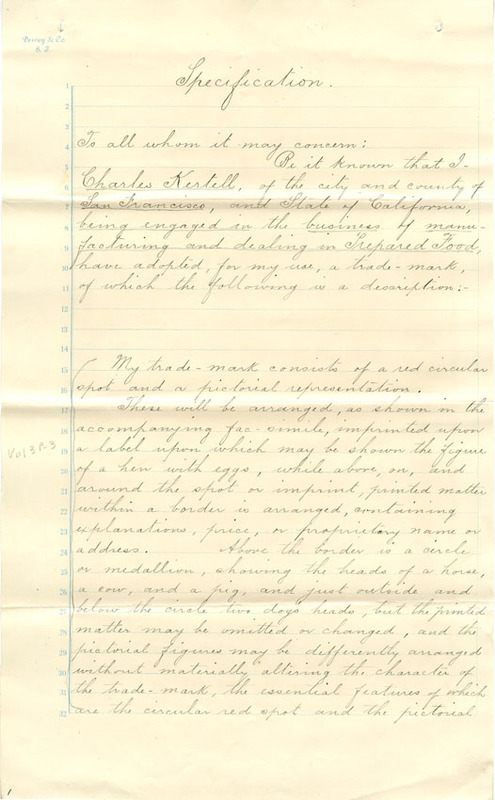 Dewey & Co.
S. F.
Specification.
To all whom it may concern:
Be it known that I
Charles Kertell, of the city and county of
San Francisco, and State of California,
being engaged in the business of manu-
facturing and dealing in Prepared Food,
have adopted, for my use, a trade-mark,
of which the following is a description:-
My trade-mark consists of a red circular
spot and a pictorial representation.
These will be arranged, as shown in the
accompanying fac-simile, imprinted upon
a label upon which may be shown the figure
of a hen with eggs, while above, on, and
around the spot or imprint, printed matter
within a border is arranged, containing
explanations, price, or proprietory name or
address. Above the border is a circle
or medallion, showing the heads of a horse,
a cow, and a pig, and just outside and
below the circle two dogs heads, but the printed
matter may be omitted or changed, and the
pictorial figures may be differently arranged
without materially altering the character of
the trade-mark, the essential features of which
are the circular red spot and the pictorial
Vol 3 P-3
1
2
3
4
5
6
7
8
9
10
11
12
13
14
15
16
17
18
19
20
21
22
23
24
25
26
27
28
29
30
31
32